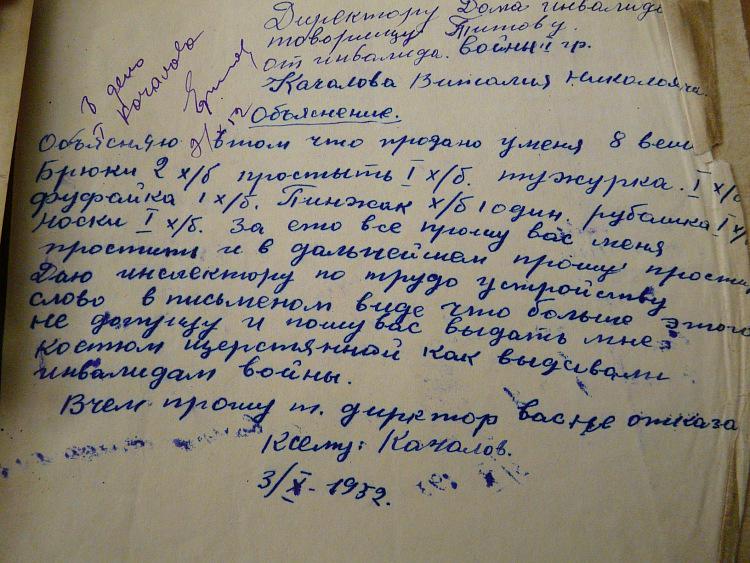 Директору Дома инвалидо
товарищу Титову.
от инвалида. войны II гр.
Качалова Виталия Николаяча.
В дело
Качалова
Объяснение.
Объясняю втом что продано уменя 8 вещ
Брюки 2 х/б простыть I х/б. тужурка. I х/б
фуфайка 1 х/б. Пинжак х/б один. рубашка I х/
носки I х/б. За ето все прошу вас меня
простить и в дальнейшем прошу прости
Даю инспектору по трудо устройству
слово в письменом виде что больше этого
не допущу и пошу вас выдать мне
костюм щерстянной как выдавали
инвалидам войны.
Вчем прошу т. дирктор вас не отказа
Ксему: Качалов.
3/X - 1952.